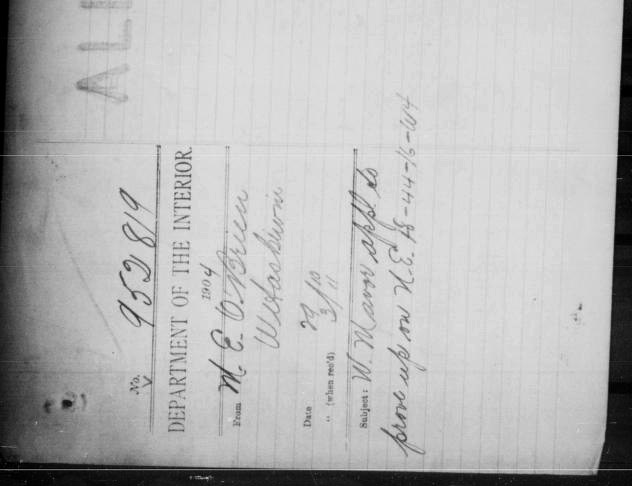 AL
No. 952819
DEPARTMENT OF THE INTERIOR.
1904
From M. E. O'Brien
Wetaskiwin
Date 29/10
" (when rec'd) 3/11
Subject: W. Mavor appl to
prove up on N.E. 18-44-16-W4